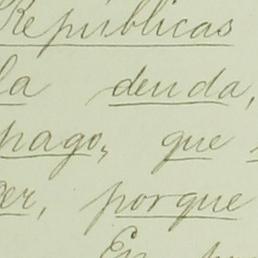 Repúblicas
la deuda,
pago, que
er, porque
En